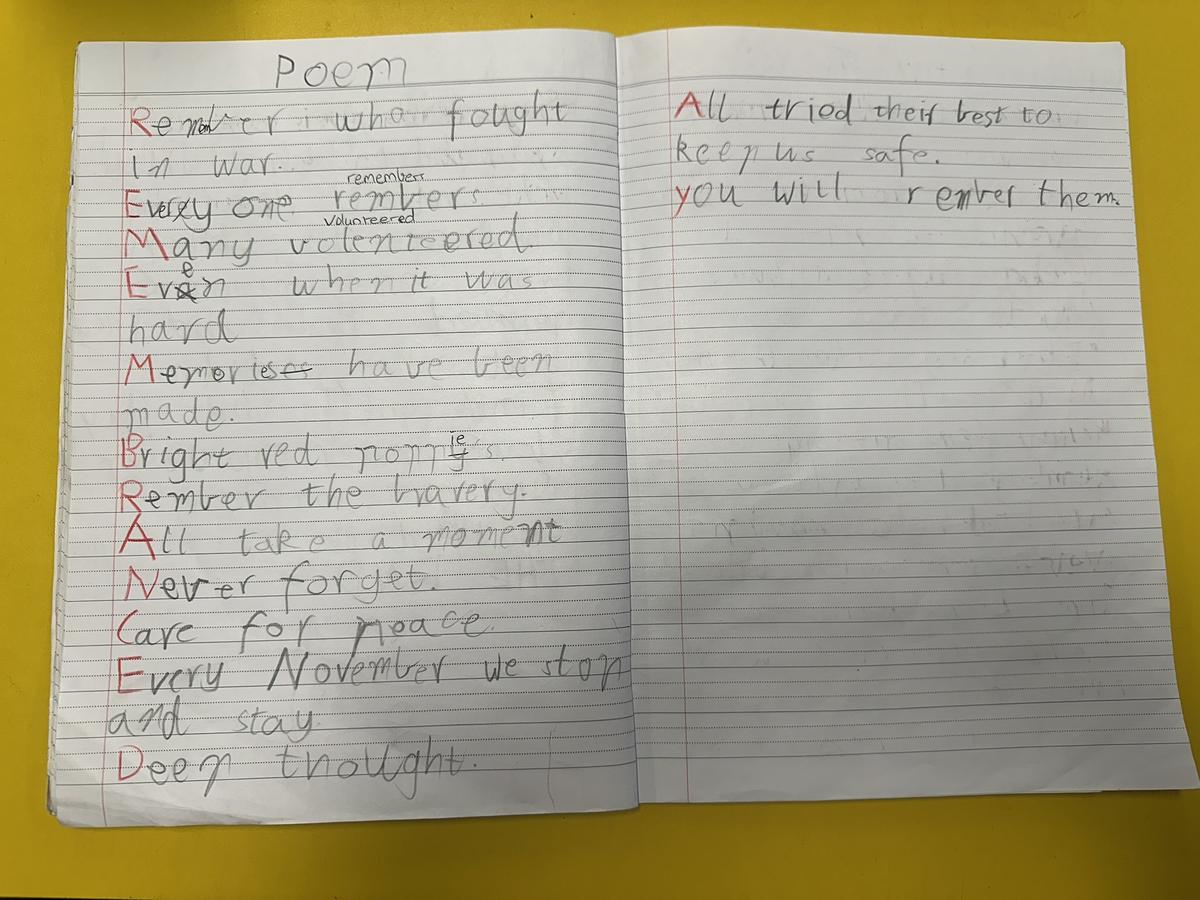 Poem
Remember who fought
in war.
remembers
Every one rembers.
volunteered
Many volenteered.
Even when it was
hard
Memories have been
made.
Bright red poppies.
Rember the bravery.
All take a moment
Never forget.
Care for peace.
Every November we stop
and stay
Deep thought.
All tried their best to
keep us safe.
you will rember them.